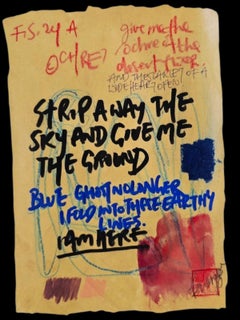 FIG. 24 A
OCHRE
give me the
ochre of the
desert floor
AND THE SCARLET OF A
WIDE HEART OPEN
STRIP AWAY THE
SKY AND GIVE ME
THE GROUND
BLUE GHOST NO LONGER
I FOLD INTO THESE EARTHY
LINES
I AM HERE